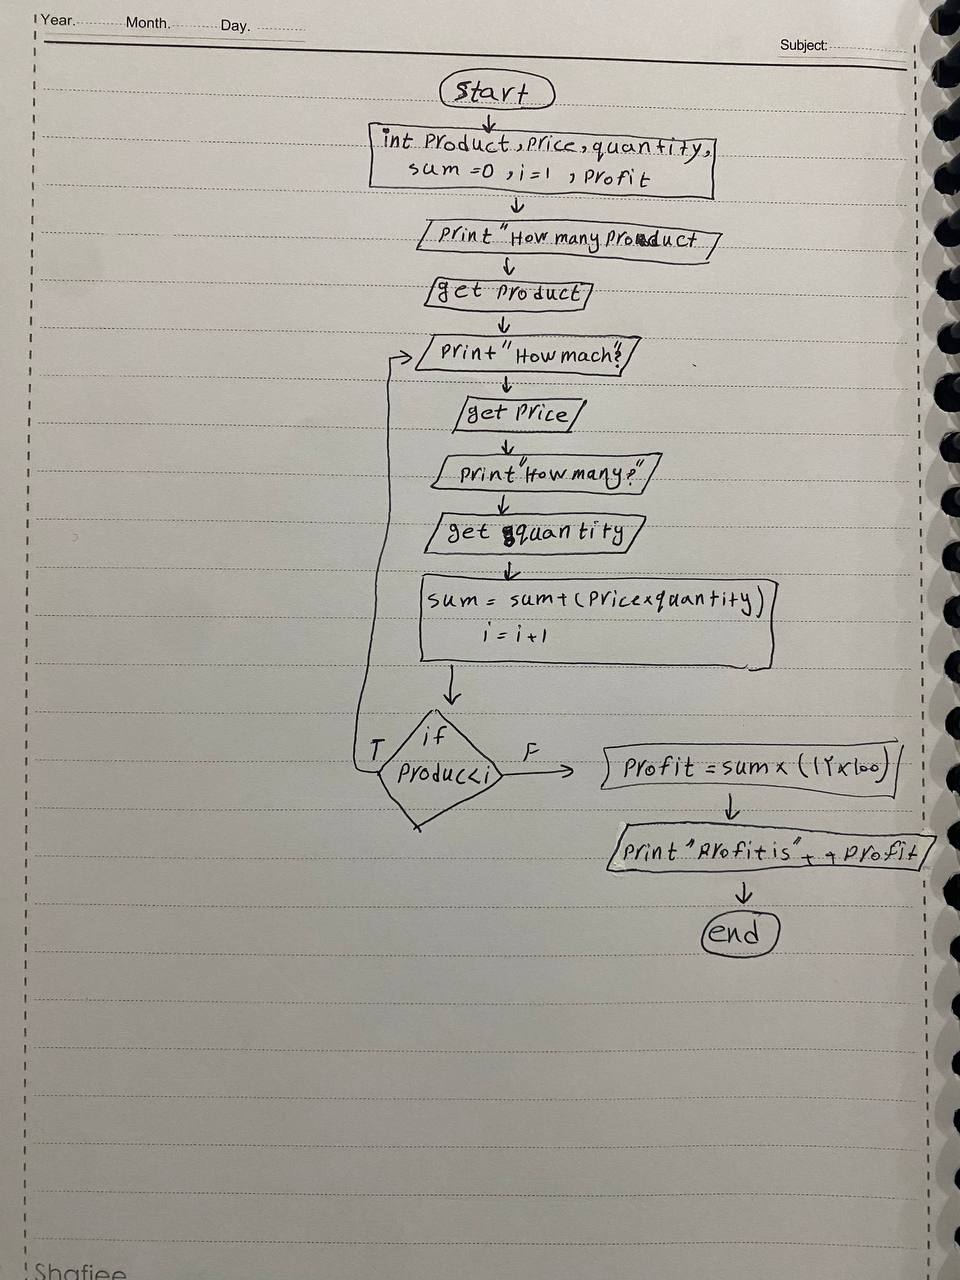 Year. Month. Day.
Subject:
start
int Product, Price, quantity,
sum =0 , i=1 , Profit
print "How many Product
get Product
print "How mach?"
get Price
print "How many?"
get quantity
sum = sum+(Price×quantity)
i = i+1
if
Produc<i
T
F
Profit = sum × (1۲×100)
print "Profit is" + + Profit
end
Shafiee